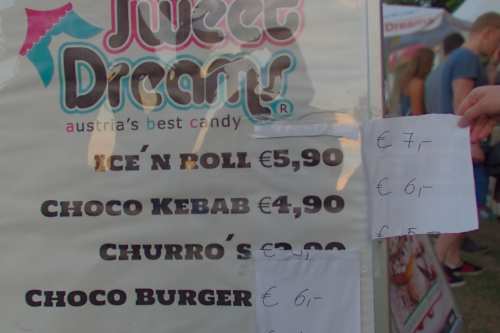 Sweet
Dreams®
austria's best candy
ICE´N ROLL €5,90
CHOCO KEBAB €4,90
CHURRO´S €3,90
CHOCO BURGER
€ 6,-
€ 7,-
€ 6,-